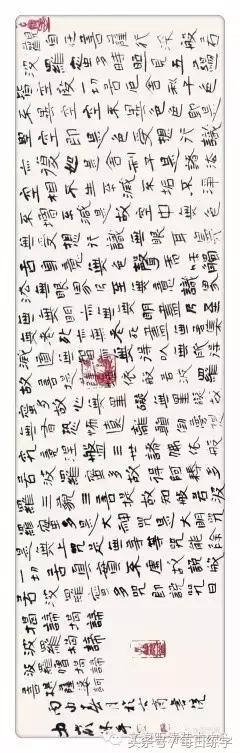 觀自在菩薩行深般若
波羅蜜多時照見五蘊
皆空度一切苦厄舍利子色
不異空空不異色色即是
空空即是色受想行識
亦復如是舍利子是諸法
空相不生不滅不垢不淨
不增不減是故空中無色
無受想行識無眼耳鼻
舌身意無色聲香味觸
法無眼界乃至無意識界
無無明亦無無明盡乃至
無老死亦無老死盡無苦集
滅道無智亦無得以無所得
故菩提薩埵依般若波羅
蜜多故心無罣礙無罣礙
故無有恐怖遠離顛倒夢想
究竟涅槃三世諸佛依般
若波羅蜜多故得阿耨多
羅三藐三菩提故知般若
波羅蜜多是大神咒是大明咒
是無上咒是無等等咒能除
一切苦真實不虛故說般
若波羅蜜多咒即說咒曰
揭諦揭諦
波羅揭諦
波羅僧揭諦
菩提薩婆訶